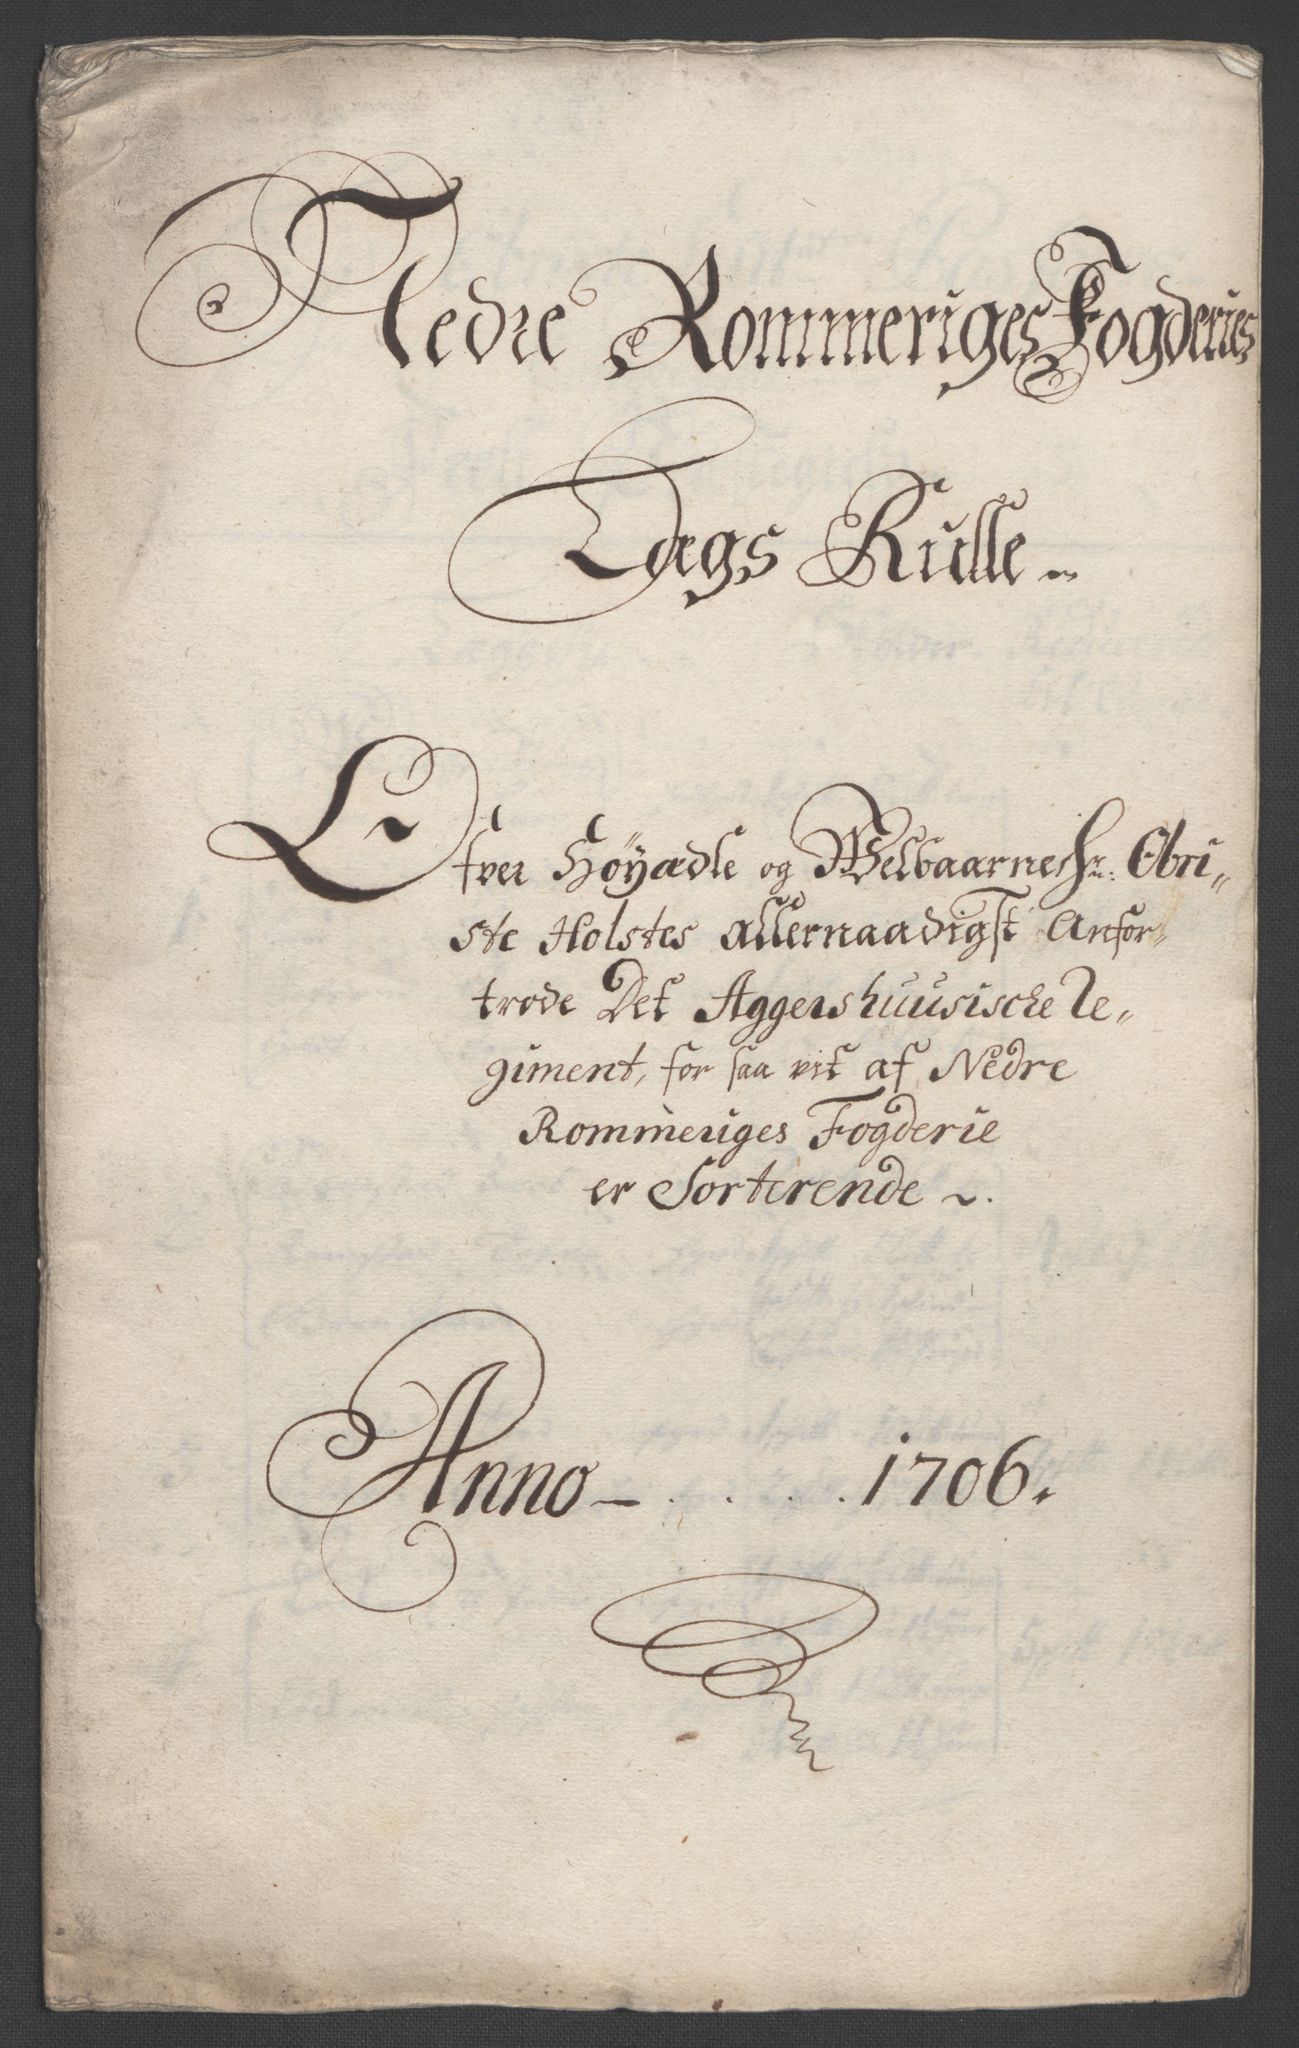 Nedre Rommeriges Fogderies
Lægs Rulle
Ofver Höyædle og Welbaarne Hr: Obri-
ste Holstes allernaadigst Anfor-
trode Det Aggershuusische Re-
giment, for saa vit af Nedre
Rommeriges Fogderie
er Sorterende
Anno - . . . . 1706.